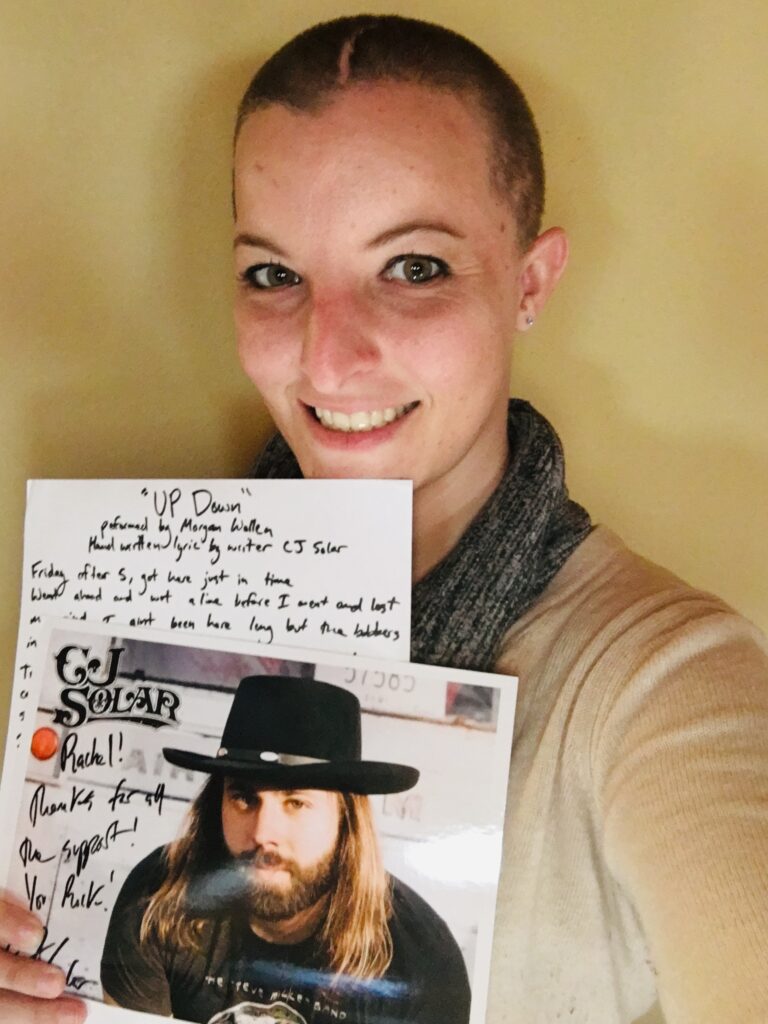 "UP Down"
peformed by Morgan Wallen
Hand written lyric by writer CJ Solar
Friday after 5, got here just in time
Went ahead and wet a line before I went and lost
m mind I aint been here long but the bobbers
in
CJ
SOLAR
Rachel!
Thanks for all
the support!
You Rock!
THE STEVE MILLER BAND